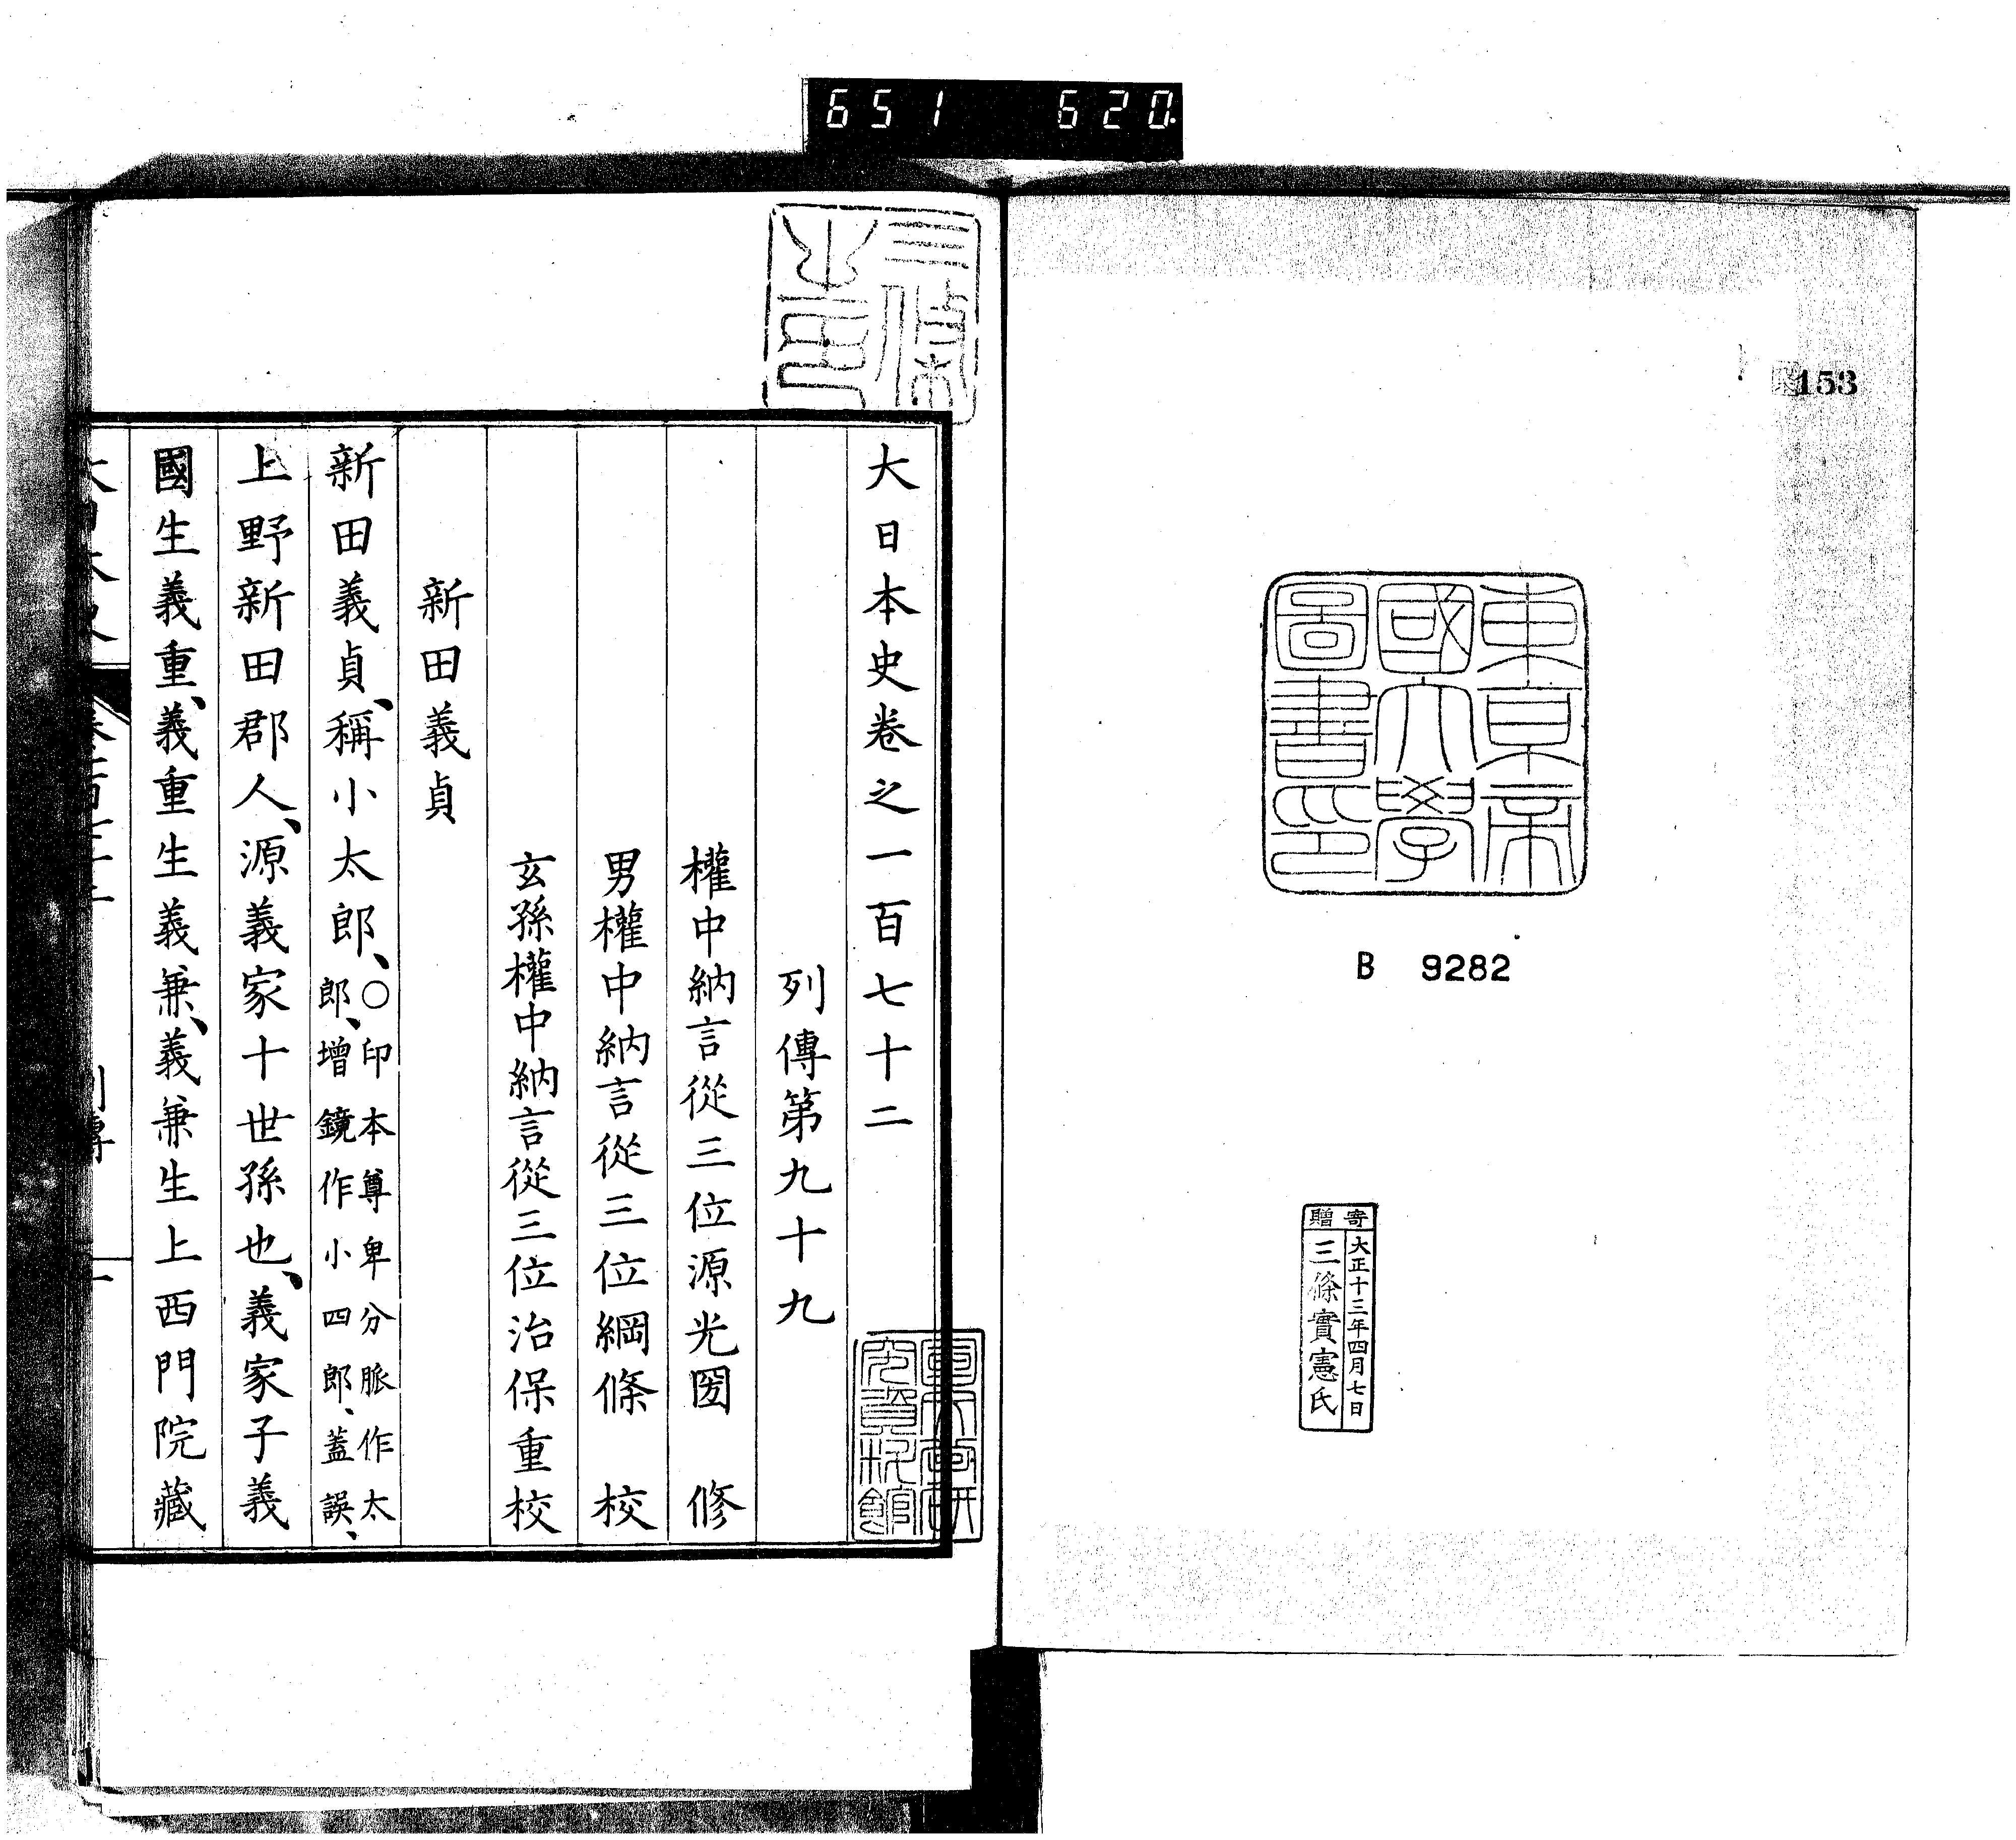 651 620
153
東京帝
國大學
圖書印
B 9282
寄贈
大正十三年四月七日
三條實憲氏
三條
之印
大日本史卷之一百七十二
列傳第九十九
權中納言從三位源光圀 修
男權中納言從三位綱條 校
玄孫權中納言從三位治保重校
新田義貞
新田義貞、稱小太郎、○印本尊卑分脈作太
郎、增鏡作小四郎、蓋誤、
上野新田郡人、源義家十世孫也、義家子義
國生義重、義重生義兼、義兼生上西門院藏